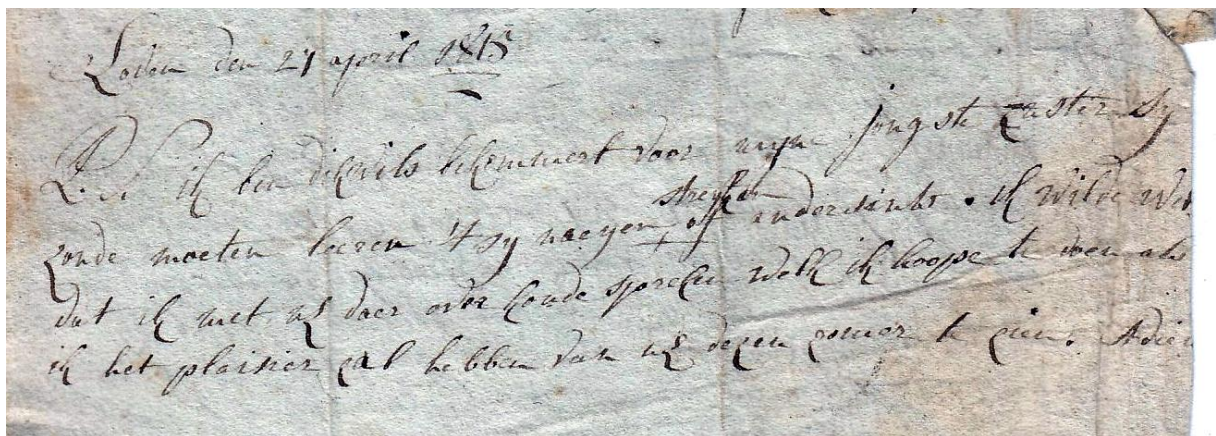 Loven den 27 april 1815
P.S. ik ben dikwils bekommert voor myne jongste zuster sy
zoude moeten leeren 't sy naeyen, of andersints. ik wilde wel
streyken
dat ik met UE daer over konde spreken welk ik hoope te doen als
ik het plaisier zal hebben van UE dezen zomer te zien. Adieu